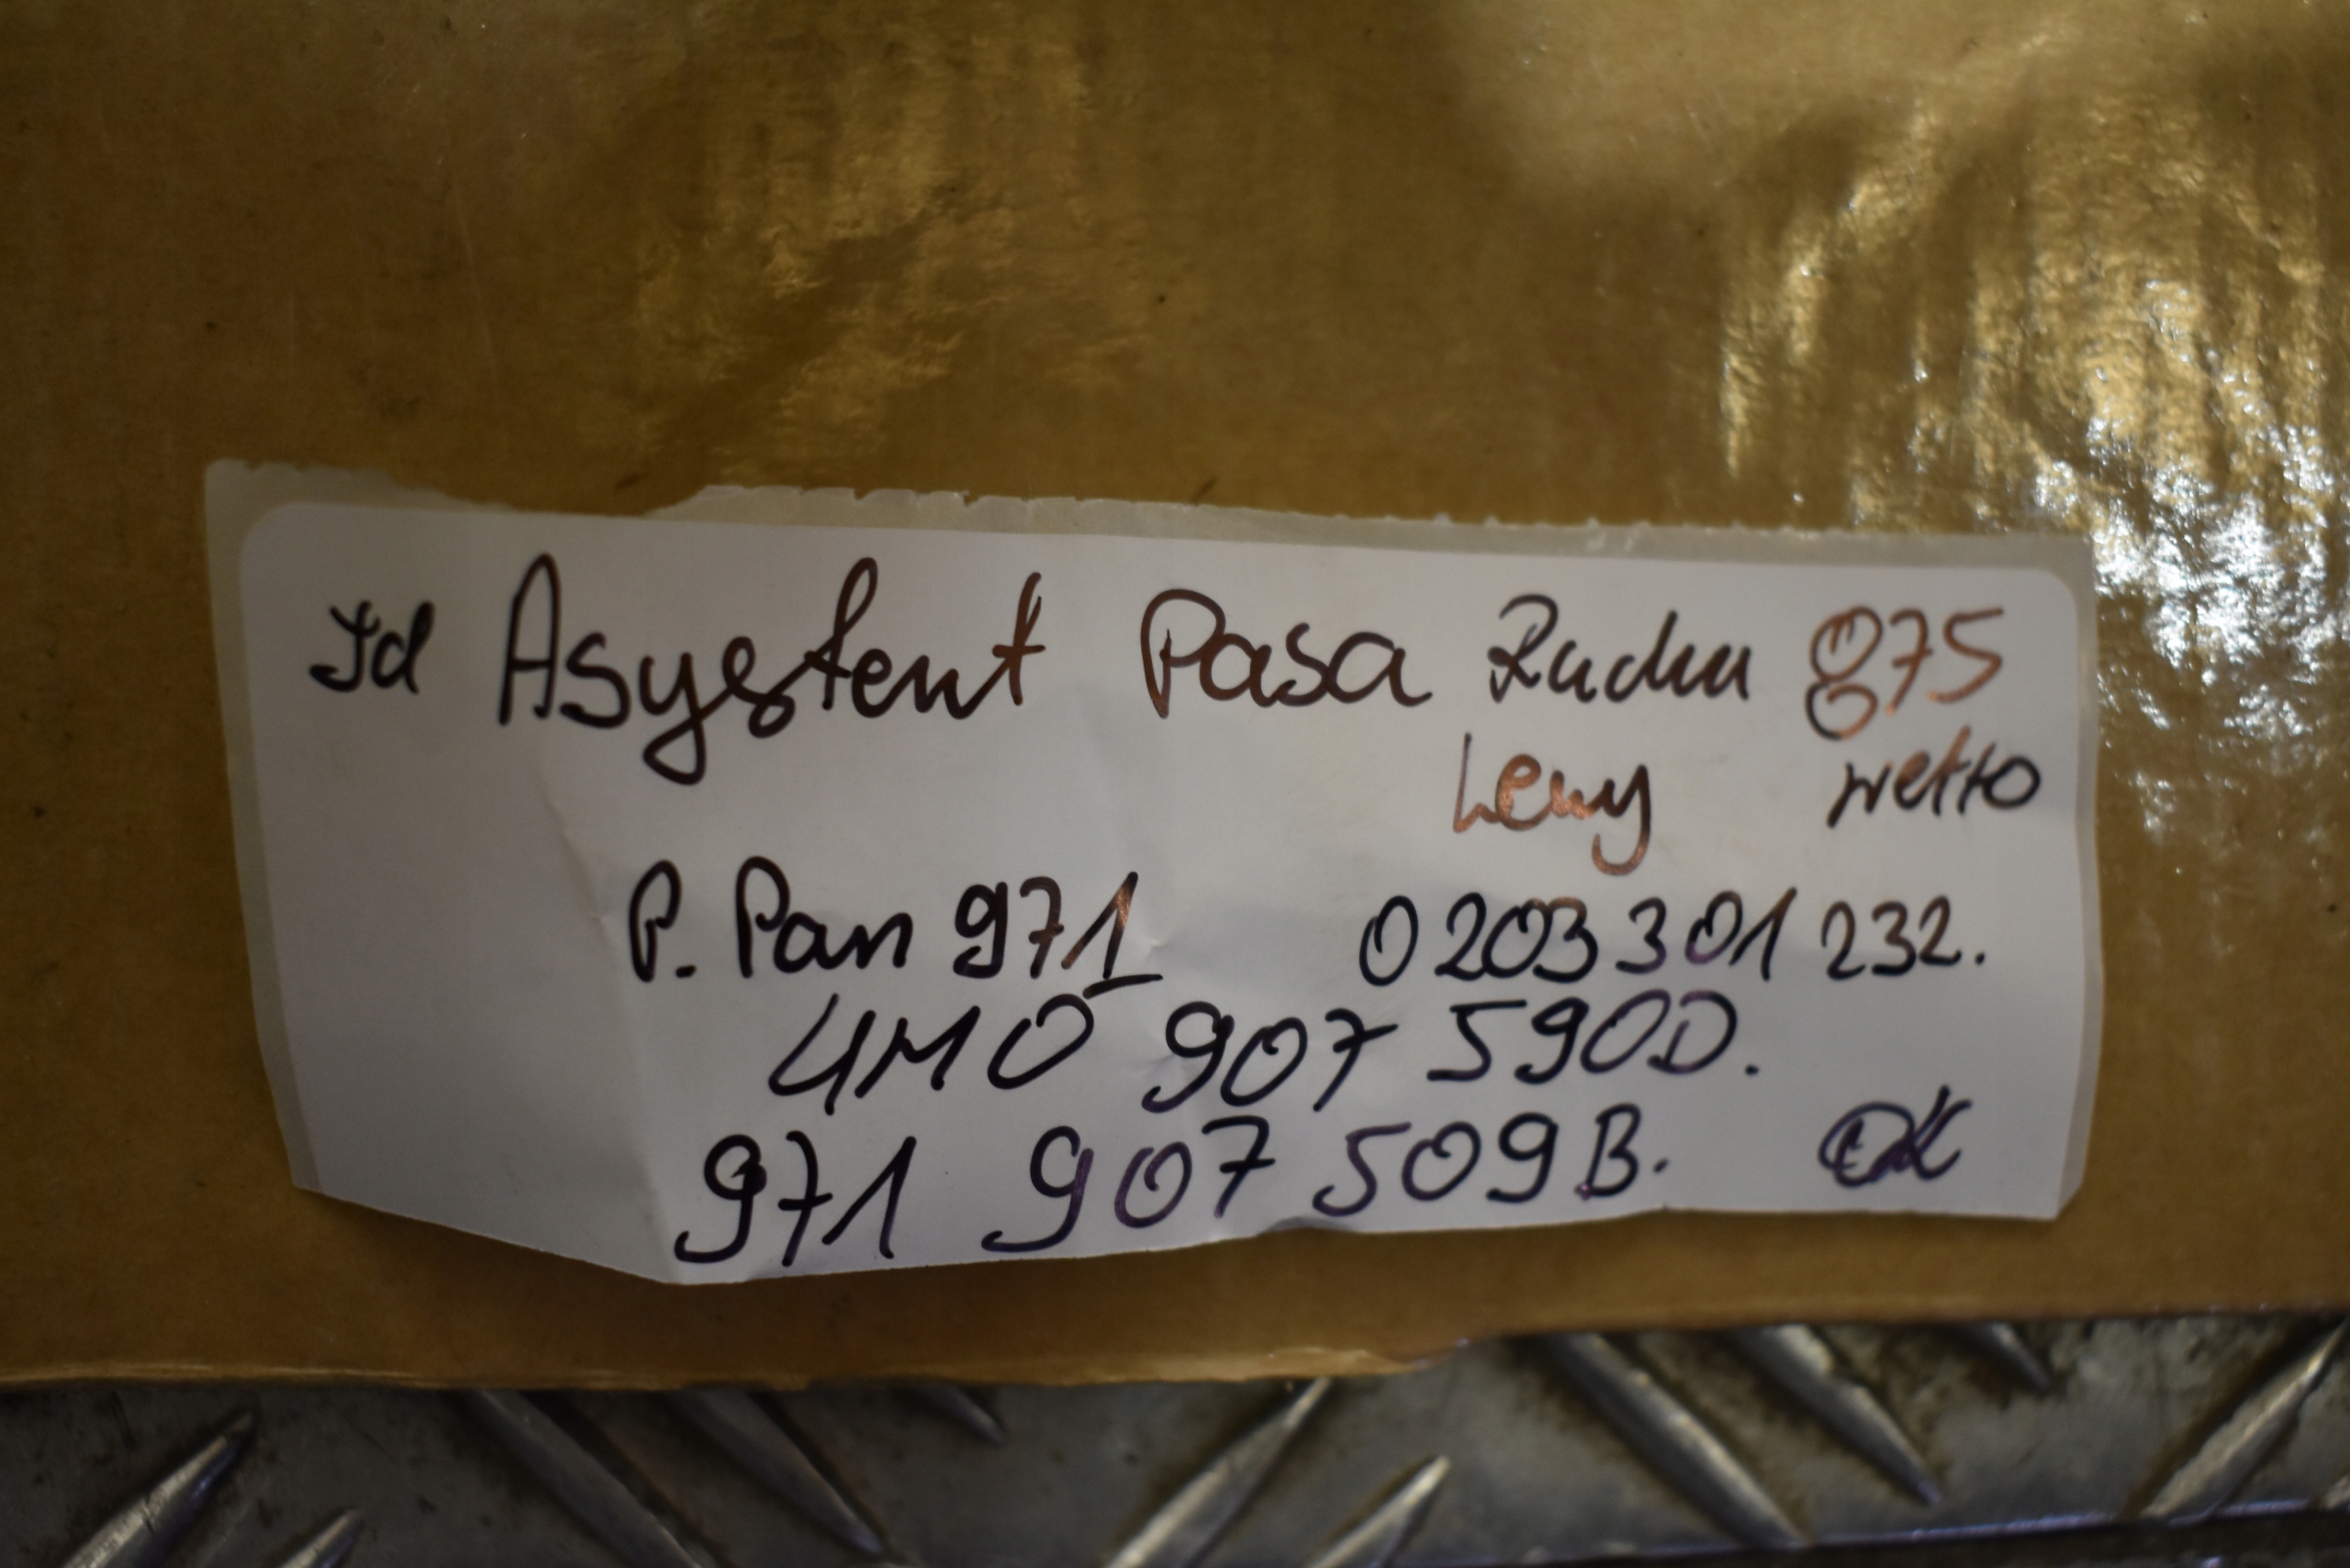 Id Asystent Pasa Ruchu 875
Lewy netto
P. Pan 971 0203 301 232.
4M0 907 590D.
971 907 509B. OK